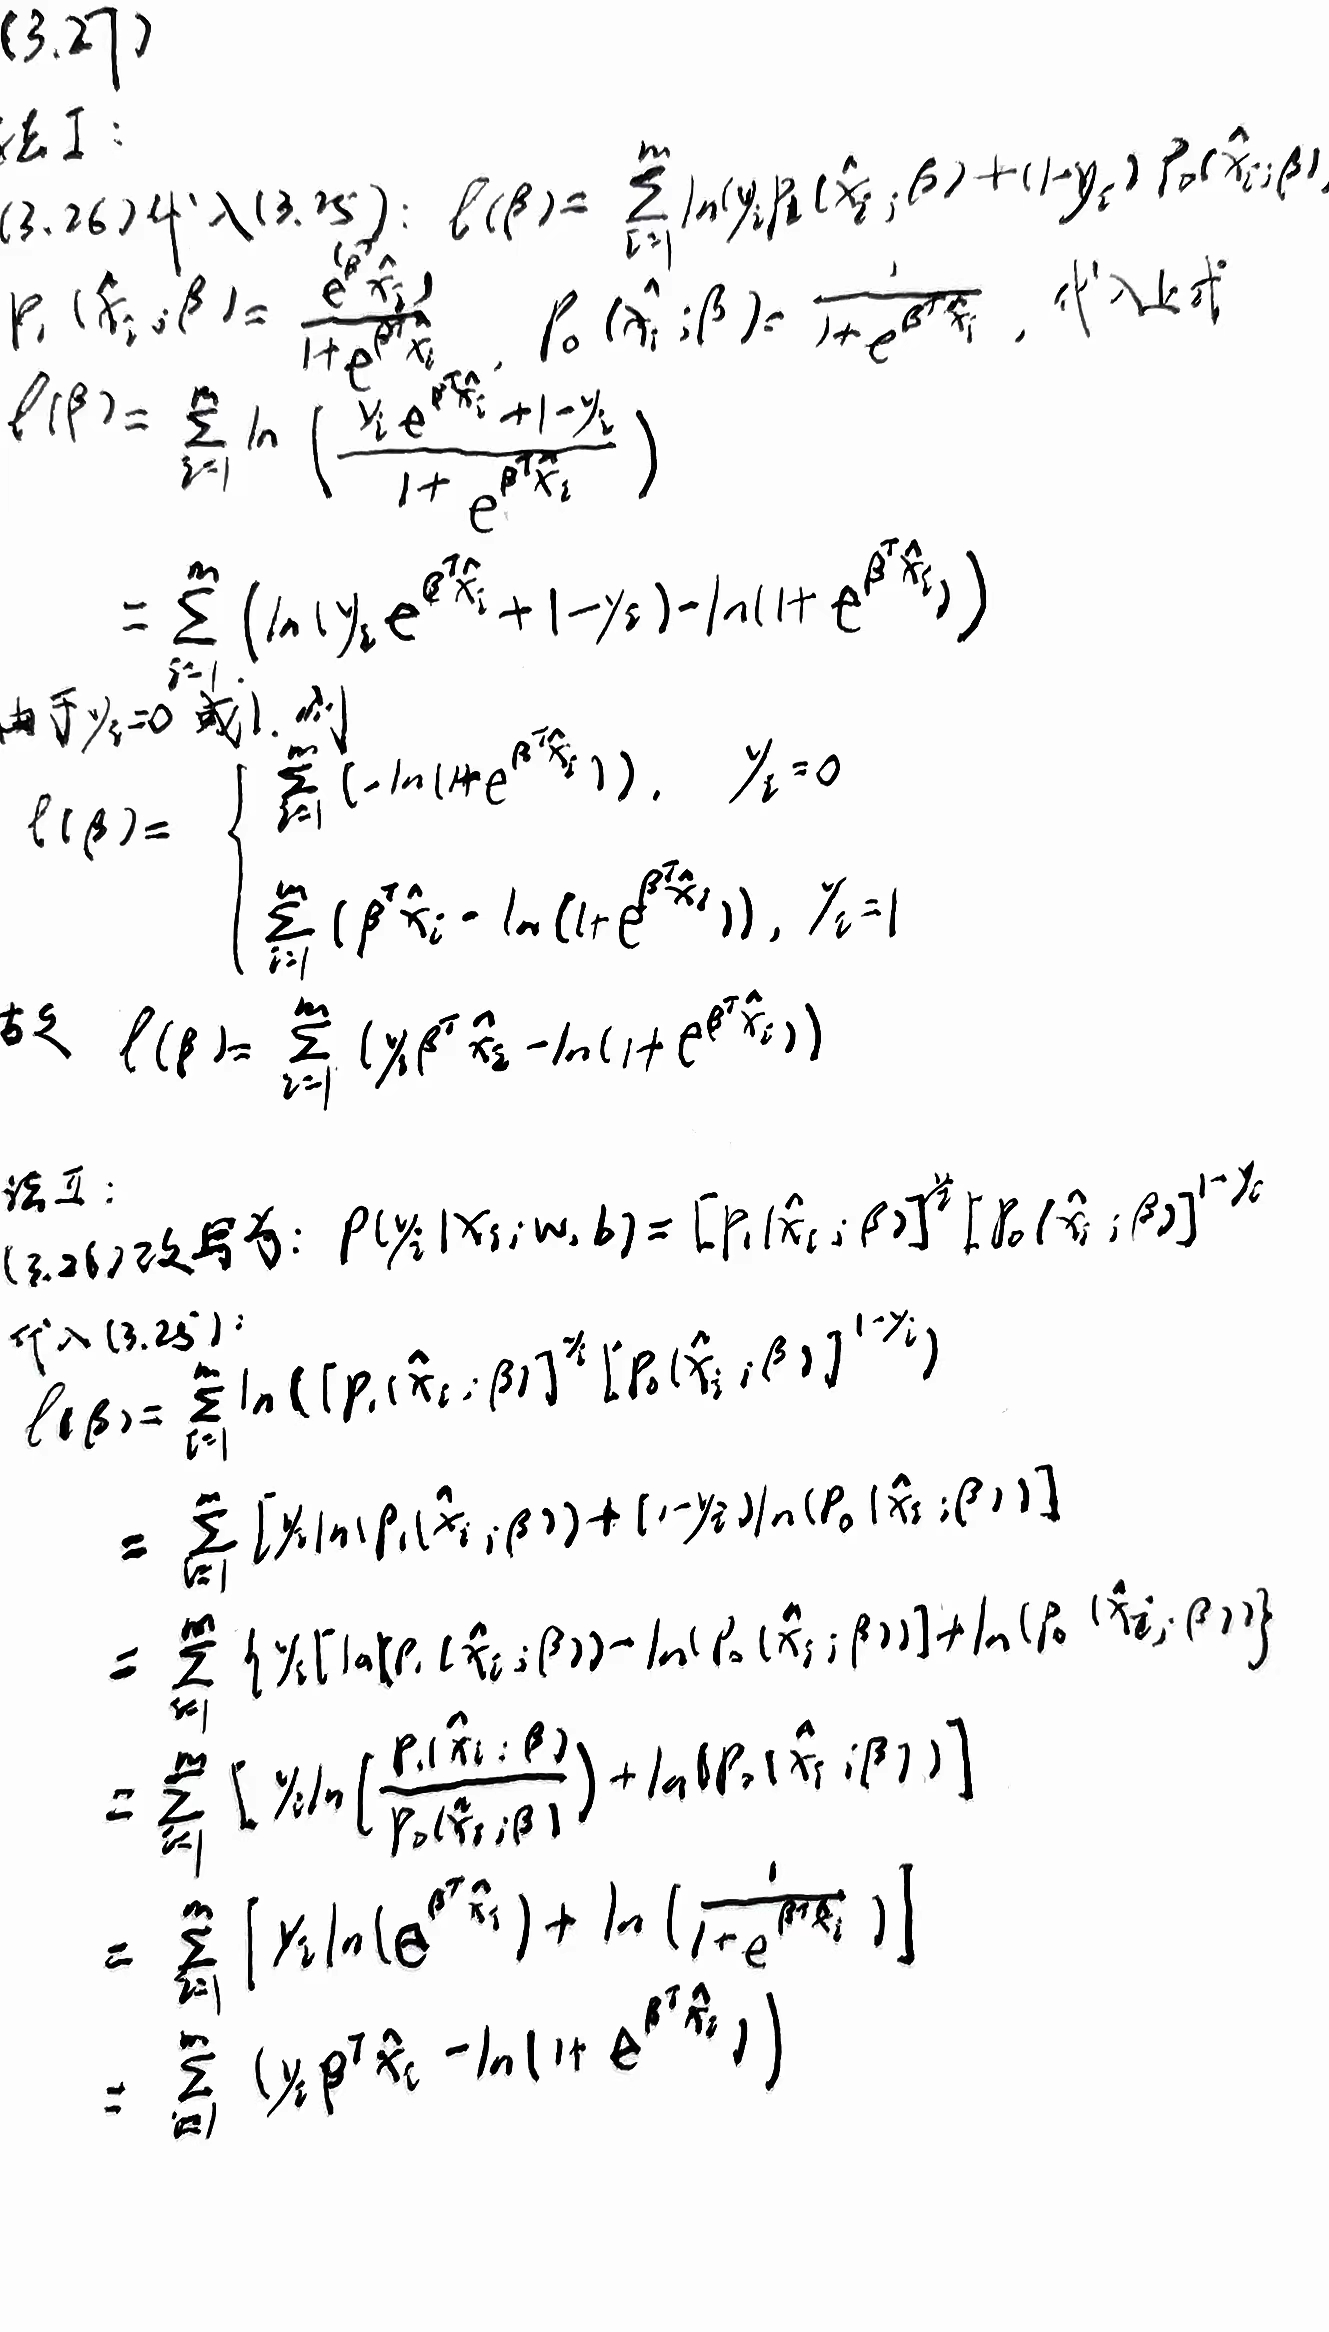 (3.27)
法I:
(3.26)代入(3.25): ℓ(β)= ∑_{i=1}^{m} ln(y_i p_1(x̂_i;β)+(1-y_i) p_0(x̂_i;β),
p_1(x̂_i;β)= e^{(β^T x̂_i)}/(1+e^{β^T x̂_i}), p_0(x̂_i;β)= 1/(1+e^{β^T x̂_i}), 代入上式
ℓ(β)= ∑_{i=1}^{m} ln( (y_i e^{β^T x̂_i}+1-y_i)/(1+e^{β^T x̂_i}) )
= ∑_{i=1}^{m} (ln(y_i e^{β^T x̂_i}+1-y_i)-ln(1+e^{β^T x̂_i}))
由于y_i=0 或1. 则
ℓ(β)= { ∑_{i=1}^{m} (-ln(1+e^{β^T x̂_i})), y_i=0
∑_{i=1}^{m} (β^T x̂_i - ln(1+e^{β^T x̂_i})), y_i=1
故 ℓ(β)= ∑_{i=1}^{m} (y_i β^T x̂_i -ln(1+e^{β^T x̂_i}))
法II:
(3.26)改写为: p(y_i|x_i;w,b)= [p_1(x̂_i;β)]^{y_i} [p_0(x̂_i;β)]^{1-y_i}
代入(3.25):
ℓ(β)= ∑_{i=1}^{m} ln([p_1(x̂_i;β)]^{y_i} [p_0(x̂_i;β)]^{1-y_i})
= ∑_{i=1}^{m} [y_i ln(p_1(x̂_i;β))+(1-y_i)ln(p_0(x̂_i;β))]
= ∑_{i=1}^{m} {y_i[ln(p_1(x̂_i;β))-ln(p_0(x̂_i;β))]+ln(p_0(x̂_i;β))}
= ∑_{i=1}^{m} [y_i ln( p_1(x̂_i;β)/p_0(x̂_i;β) )+ln(p_0(x̂_i;β))]
= ∑_{i=1}^{m} [y_i ln(e^{β^T x̂_i})+ ln( 1/(1+e^{β^T x̂_i}) )]
= ∑_{i=1}^{m} (y_i β^T x̂_i -ln(1+e^{β^T x̂_i}))